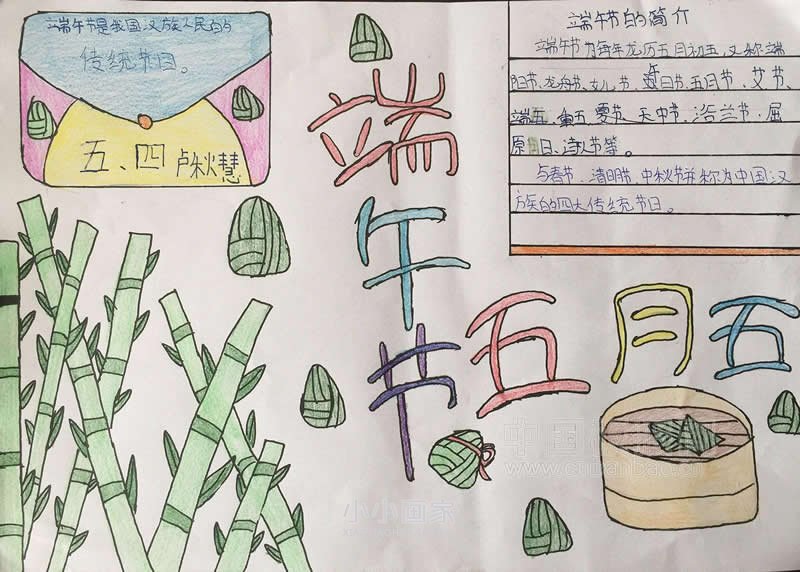 端午节是我国汉族人民的
传统节日。
五、四 卢秋慧
端午节
五月五
端午节的简介
端午节为每年农历五月初五,又称端
阳节、龙舟节、女儿节、午日节、五月节、艾节、
端五、重五、夏节、天中节、浴兰节、屈
原日、诗人节等。
与春节、清明节、中秋节并称为中国汉
族的四大传统节日。
小小画家